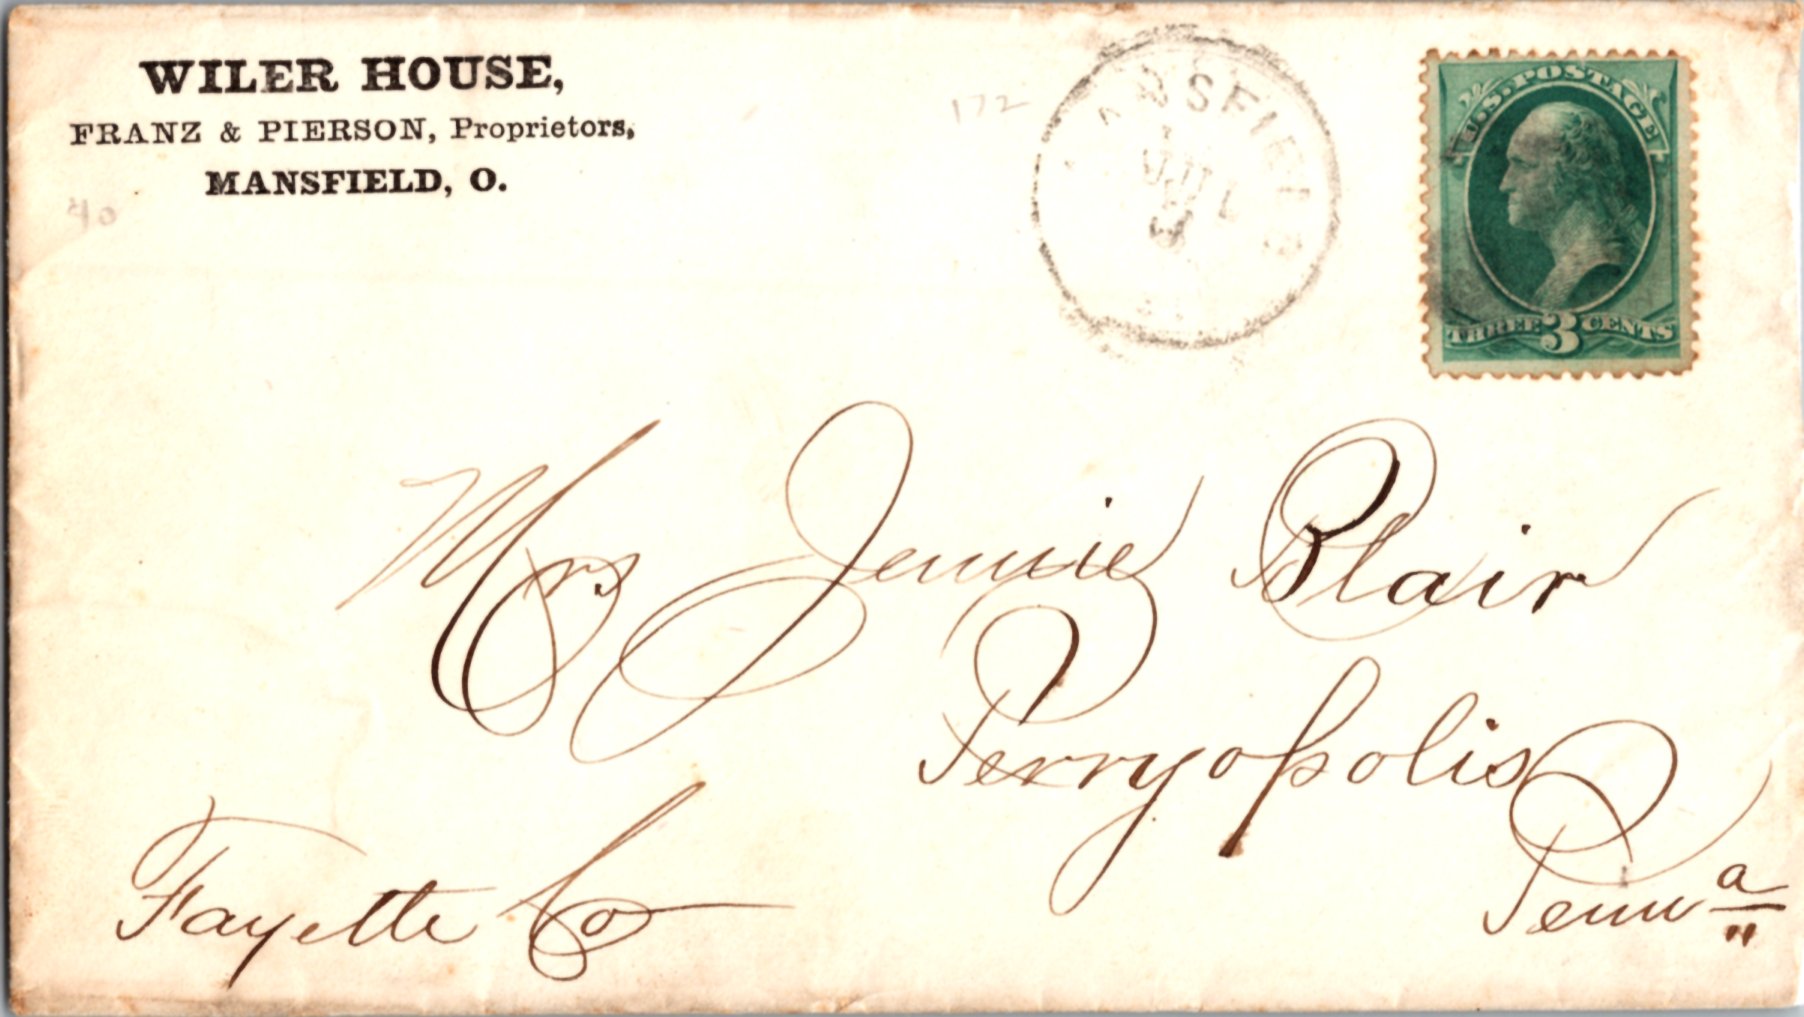 WILER HOUSE,
FRANZ & PIERSON, Proprietors,
MANSFIELD, O.
40
172
MANSFIELD
JUL
U.S. POSTAGE
THREE 3 CENTS
Mrs Jennie Blair
Perryopolis
Fayette Co
Penna